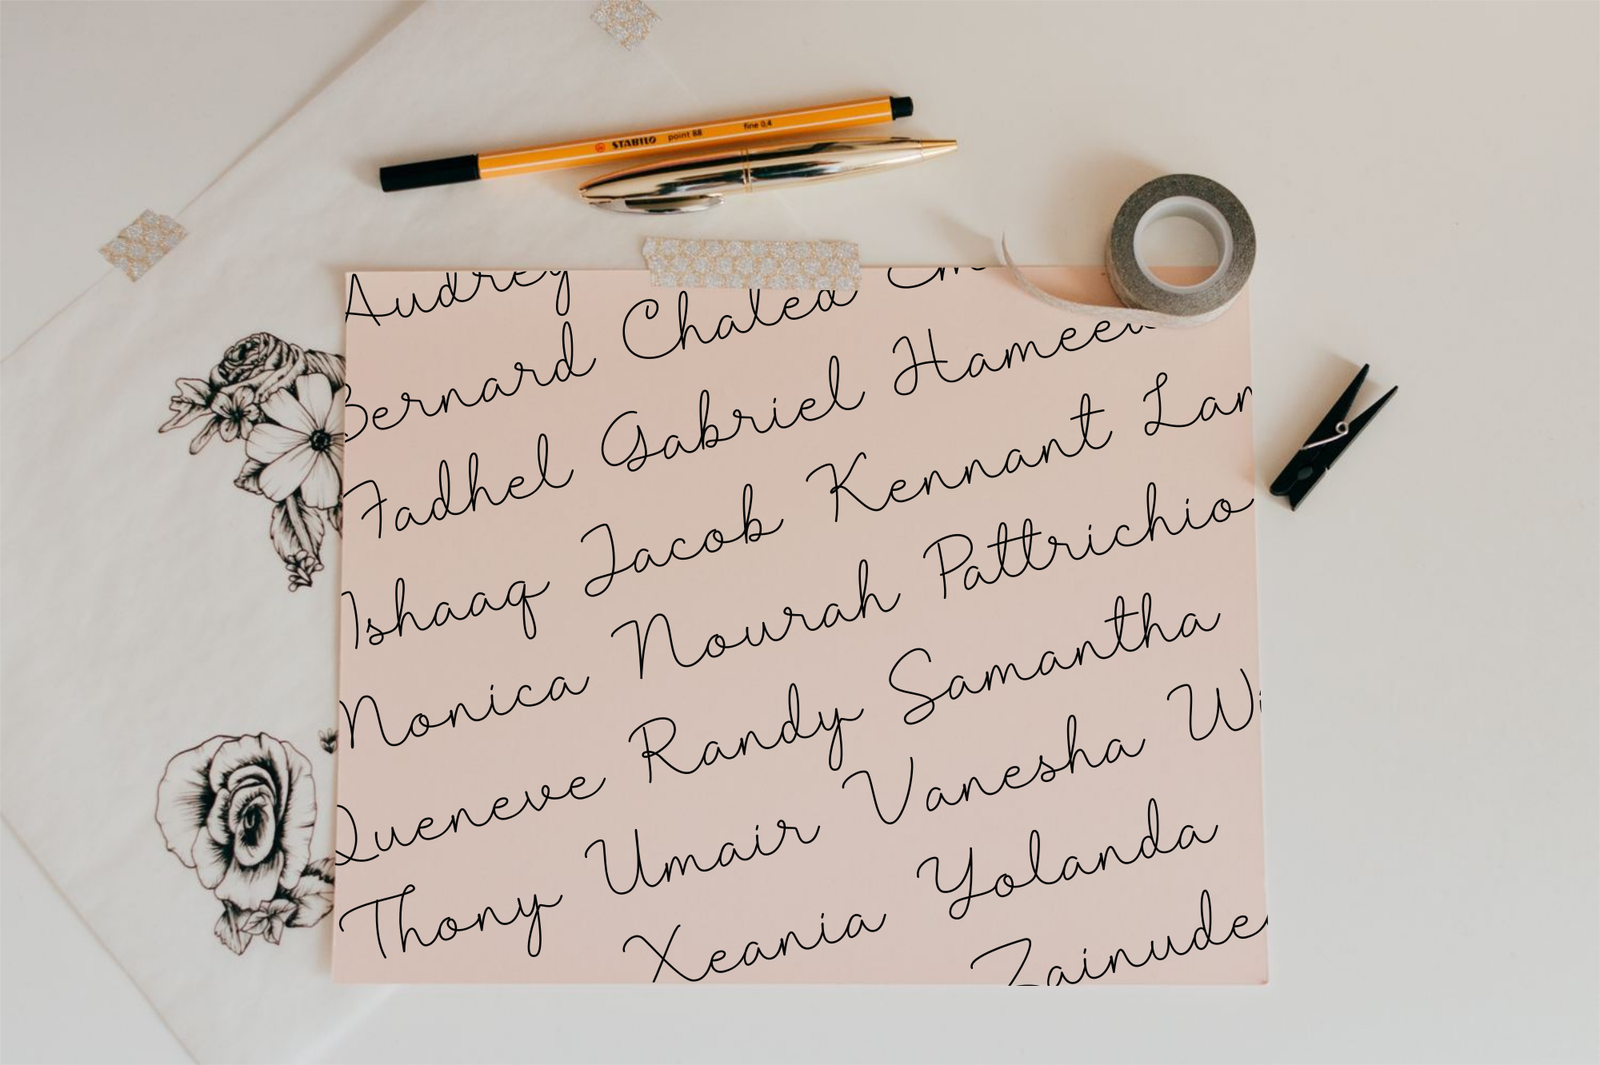 STABILO point 88 fine 0,4
Audrey
Bernard Chalea Em
Fadhel Gabriel Hameed
Ishaaq Jacob Kennant Lan
Monica Nourah Pattrichio
Queneve Randy Samantha
Thony Umair Vanesha Wi
Xeania Yolanda
Zainude